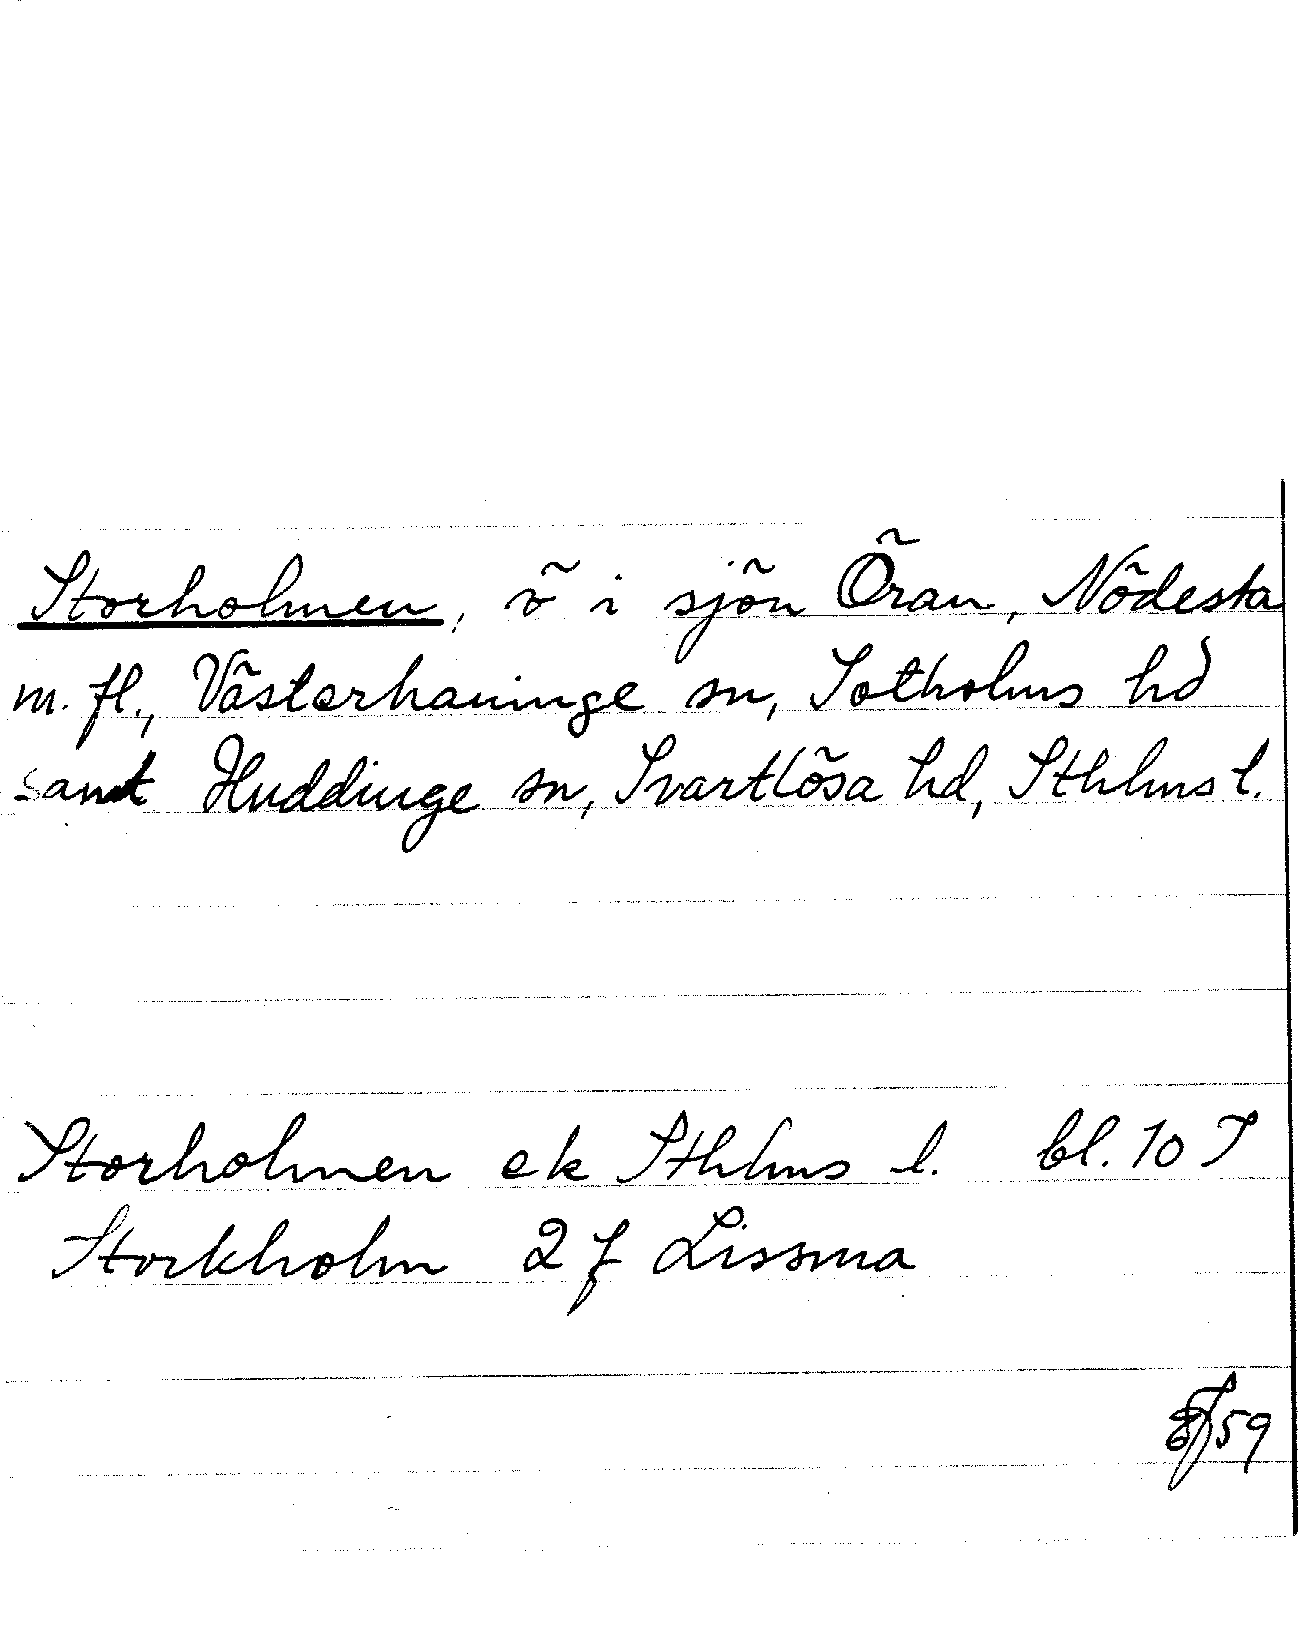 Storholmen, ö i sjön Öran, Nödesta
m. fl., Västerhaninge sn, Sotholms hd
samt Huddinge sn, Svartlösa hd, Sthlms l.
Storholmen ek Sthlms l. bl. 10 I
Stockholm 2 f Lissma
59